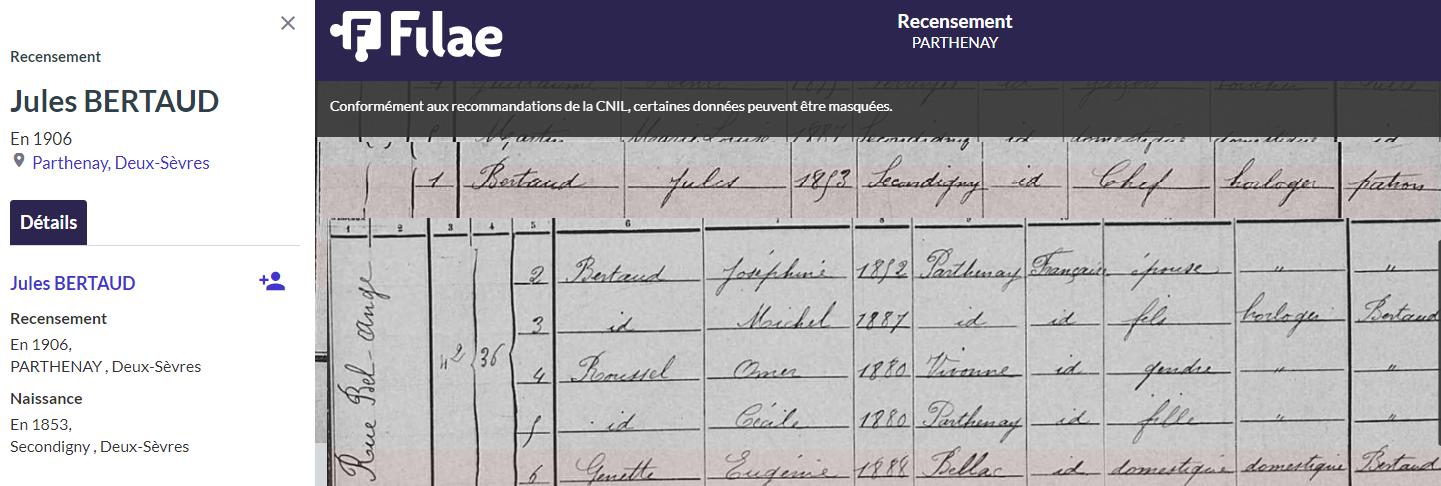 Recensement
Jules BERTAUD
En 1906
Parthenay, Deux-Sèvres
Détails
Jules BERTAUD
Recensement
En 1906,
PARTHENAY , Deux-Sèvres
Naissance
En 1853,
Secondigny , Deux-Sèvres
Filae
Recensement
PARTHENAY
Conformément aux recommandations de la CNIL, certaines données peuvent être masquées.
Martin Marie Louise 1887 Secondigny id domestique domestique id
1 Bertaud Jules 1853 Secondigny id Chef horloger patron
1 2 3 4 5 6 7 8 9
Rue Bel-ange
n° 2 36
2 Bertaud Joséphine 1852 Parthenay Française épouse " "
3 id Michel 1887 id id fils horloger Bertaud
4 Roussel Omer 1880 Vivonne id gendre " "
5 id Cécile 1880 Parthenay id fille " "
6 Genette Eugénie 1888 Bellac id domestique domestique Bertaud